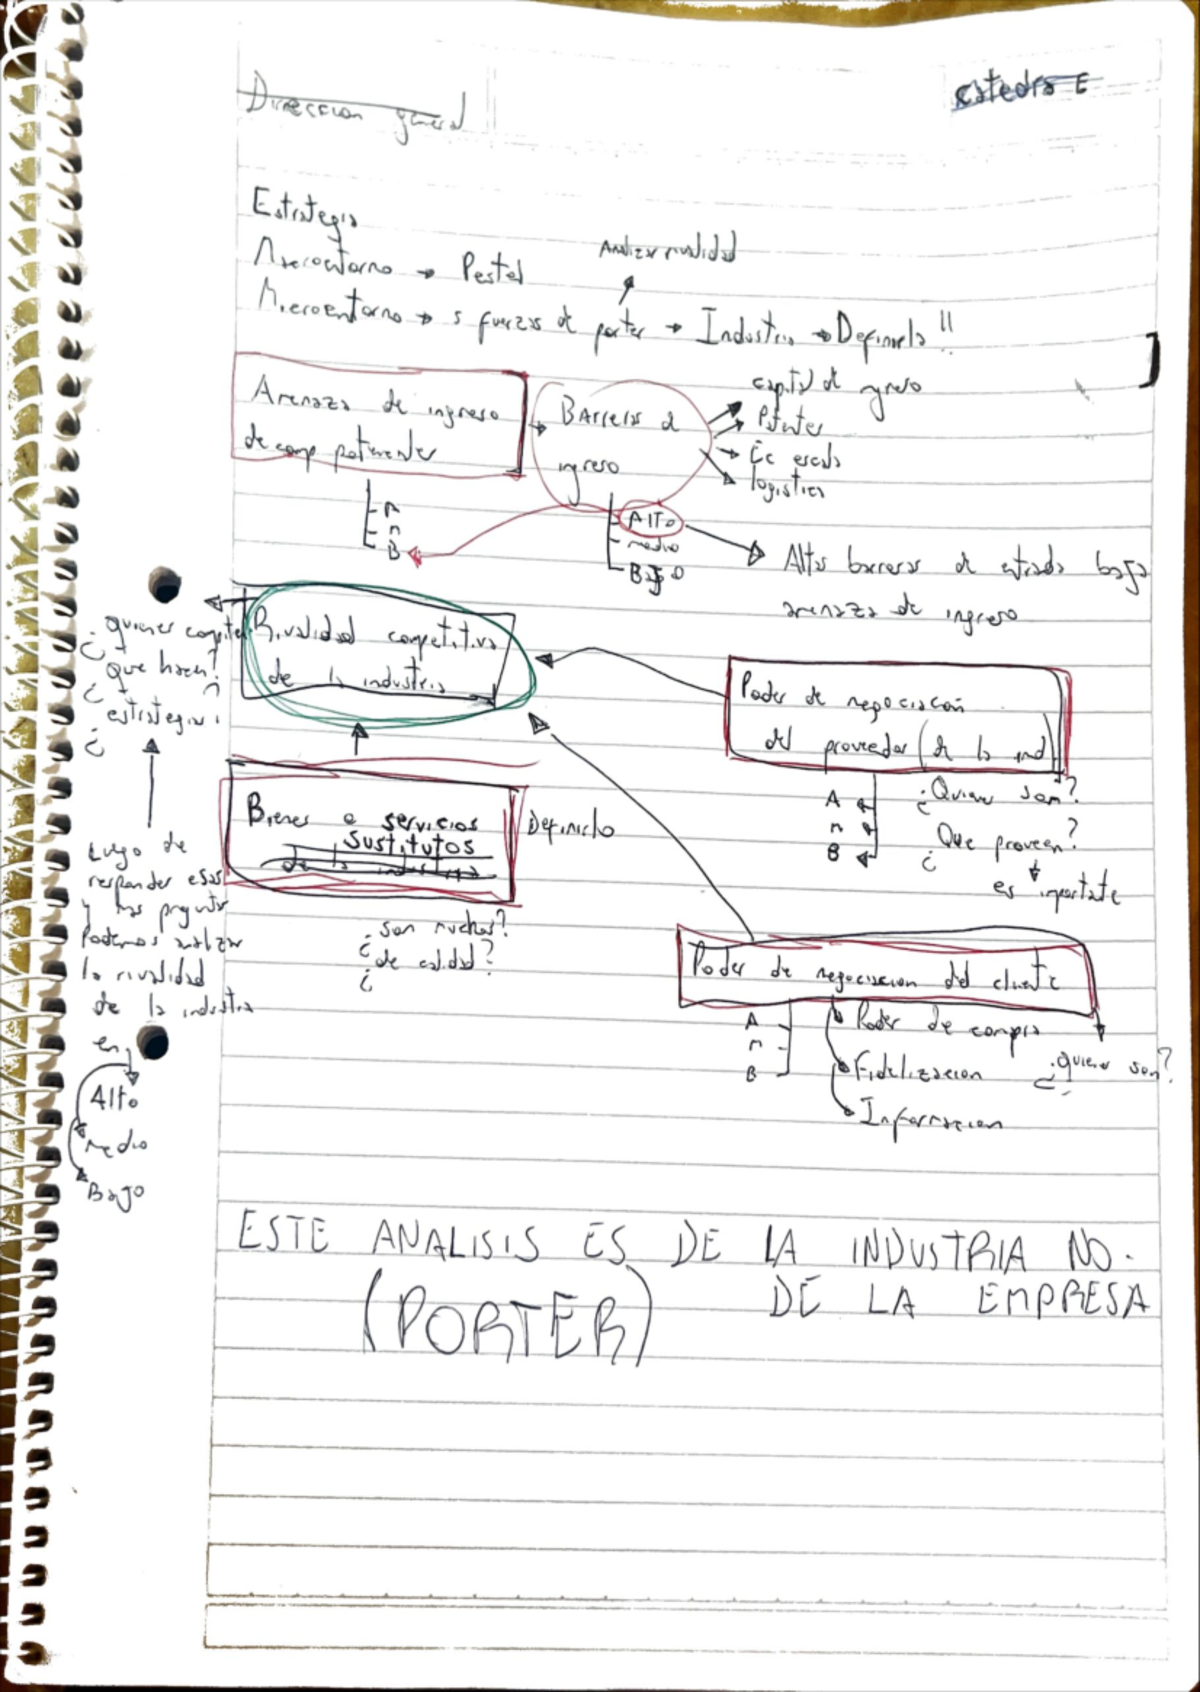 Direccion general
catedra E
Estrategia
Macroentorno → Pestel
Analizar rivalidad
Microentorno → 5 fuerzas de porter → Industria → Definirla !!
Amenaza de ingreso
de comp potenciales
Barreras de
ingreso
capital de ingreso
Patentes
Ec escala
logistica
A
M
B
Alto
medio
Bajo
Altas barreras de entrada baja
amenaza de ingreso
Rivalidad competitiva
de la industria
¿quienes compiten
¿que hacen?
¿estrategia?
Luego de
responder esas
y mas pregunta
Podemos analizar
la rivalidad
de la industria
en
Alto
medio
Bajo
Poder de negociacion
del proveedor (de la ind)
A
M
B
¿Quienes son?
¿Que proveen?
es importante
Bienes o servicios
sustitutos
de la industria
Definirlo
¿son muchos?
¿de calidad?
¿
Poder de negociacion del cliente
A
M
B
Poder de compra
Fidelizacion
Informacion
¿quienes son?
ESTE ANALISIS ES DE LA INDUSTRIA NO.
DE LA EMPRESA
(PORTER)